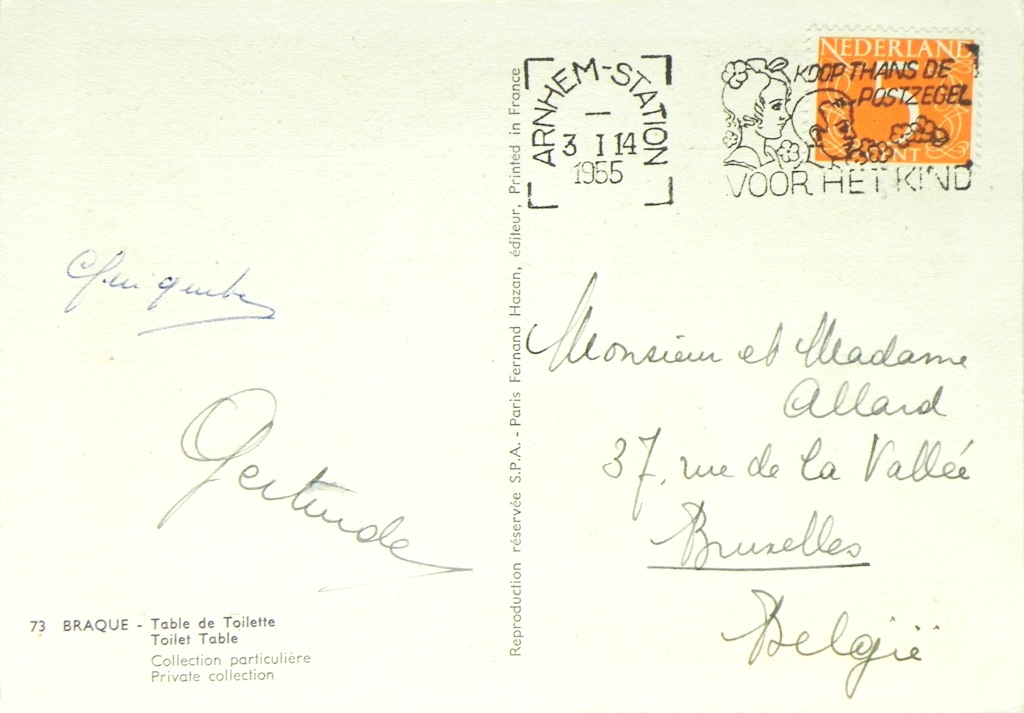 NEDERLAND
5
CENT
ARNHEM-STATION
3 I 14
1955
KOOP THANS DE
POSTZEGEL
VOOR HET KIND
Gertrude
73 BRAQUE - Table de Toilette
Toilet Table
Collection particulière
Private collection
Reproduction réservée S.P.A. - Paris Fernand Hazan, éditeur, Printed in France
Monsieur et Madame
Allard
37, rue de la Vallée
Bruxelles
België